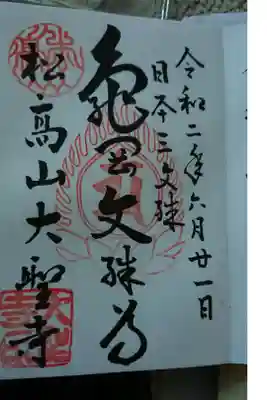 令和二年六月廿一日
日本三文殊
亀岡文殊尊
松高山大聖寺